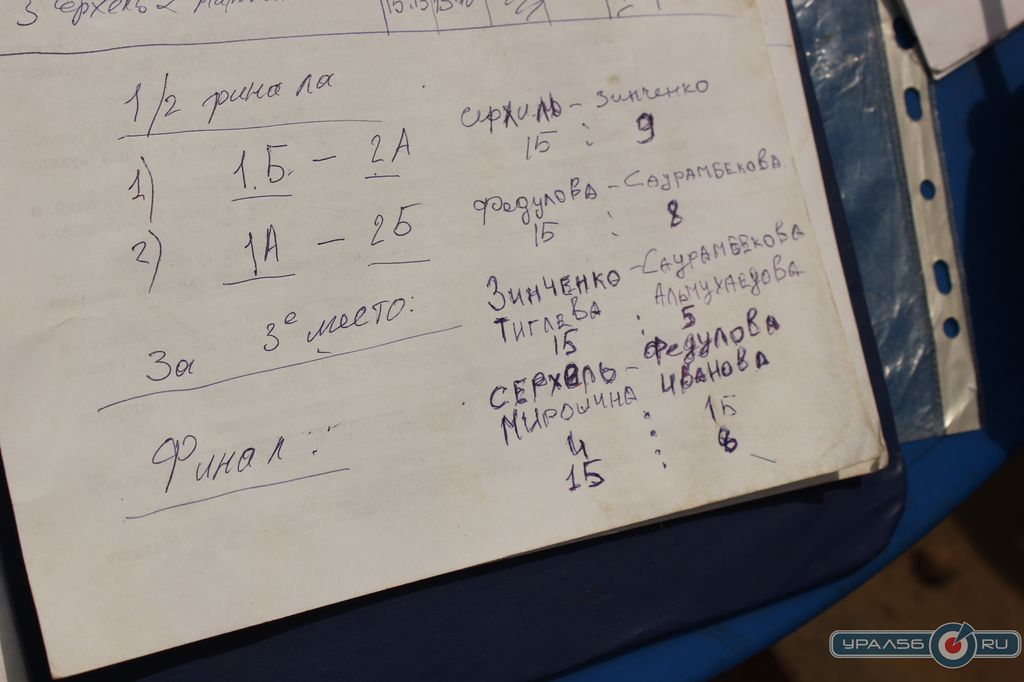 3 Серхель
15.15
1/2 финала
Серхиль – Зинченко
15 : 9
1) 1.Б. – 2А
Федулова – Саурамбекова.
15 : 8
2) 1А – 2Б
За 3е место:
Зинченко – Саурамбекова
Тиглева Альмухаедова
15 : 5
Финал:
Серхель – Федулова
Мирошина Иванова
4 : 15
15 : 8
УРАЛ56 RU